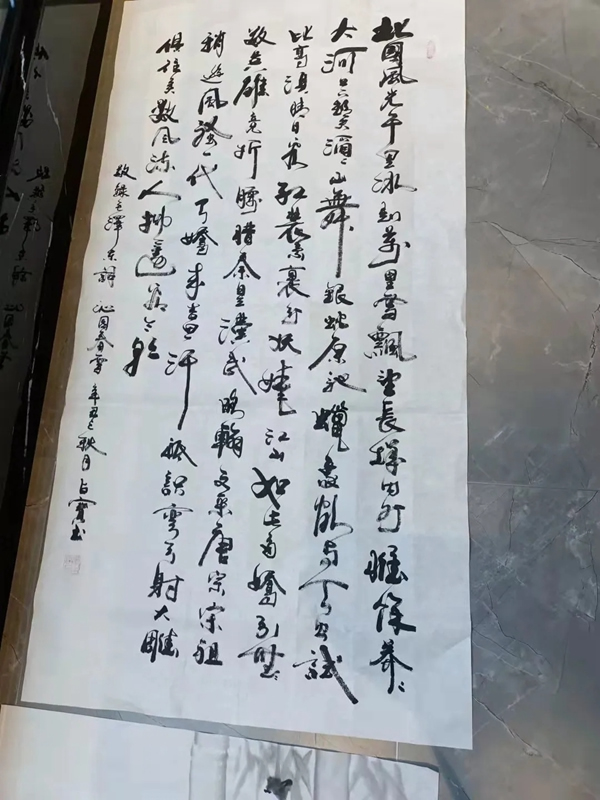 北國風光千里冰封萬里雪飄望長城內外惟餘莽々
大河上下頓失滔々山舞銀蛇原馳蠟象欲与天公試
比高須晴日看紅裝素裹分外妖嬈江山如此多嬌引無
數英雄竞折腰惜秦皇漢武略輸文采唐宗宋祖
稍遜風騷一代天驕成吉思汗祇識彎弓射大雕
俱往矣數風流人物還看今朝
敬錄毛澤東詞 沁園春雪 辛丑之秋月